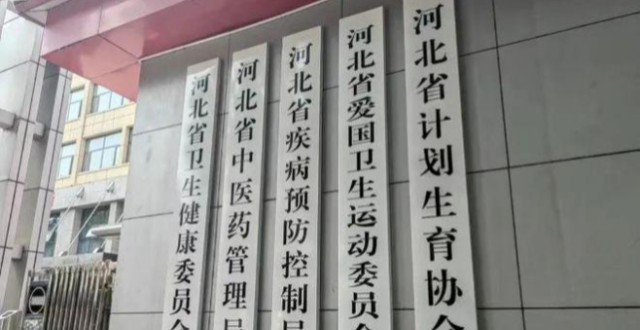 河北省卫生健康委员会
河北省中医药管理局
河北省疾病预防控制局
河北省爱国卫生运动委员会
河北省计划生育协会